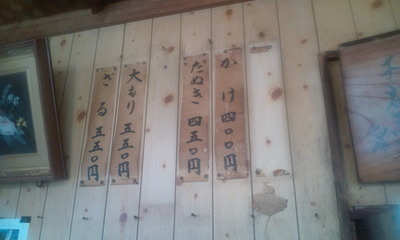 かけ 四〇〇円
たぬき 四五〇円
大もり 五五〇円
ざる 五五〇円